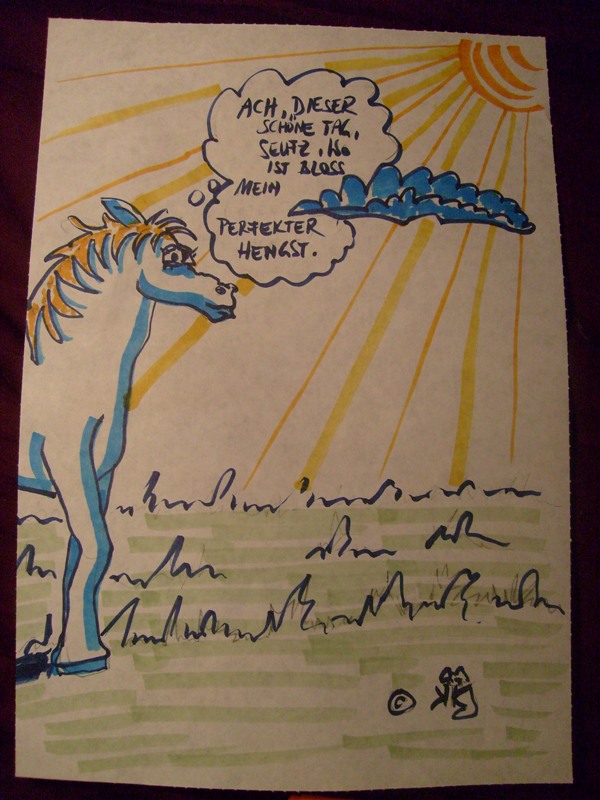 ACH, DIESER
SCHÖNE TAG,
SEUTZ, WO
IST BLOSS
MEIN
PERFEKTER
HENGST.
©